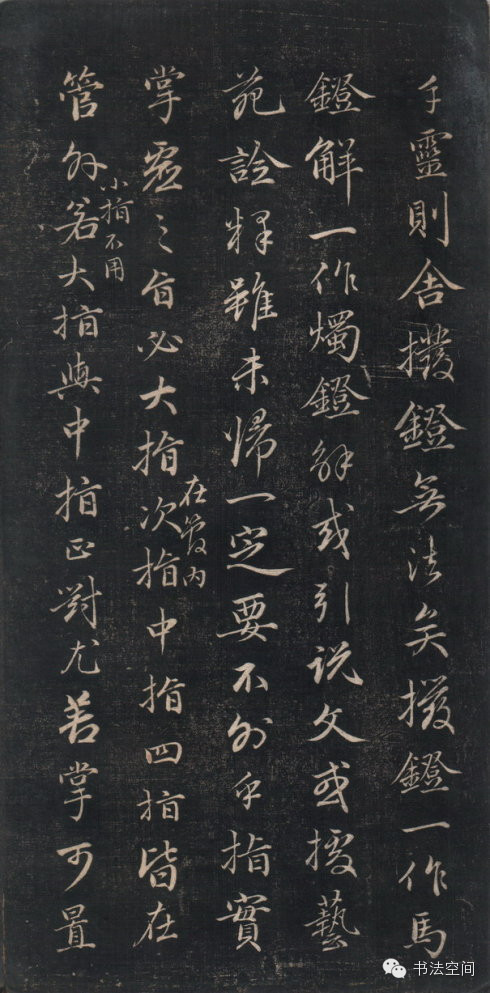 手靈則舍撥鐙無法矣撥鐙一作馬
鐙解一作燭鐙解或引說文或援藝
苑詮釋雖未歸一定要不外乎指實
在管内
掌虛之旨必大指次指中指四指皆在
小指不用
管外若大指與中指正對尤善掌可置
书法空间